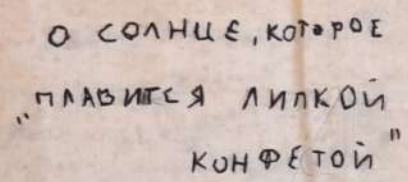 О СОЛНЦЕ, КОТОРОЕ
"ПЛАВИТСЯ ЛИПКОЙ
КОНФЕТОЙ"